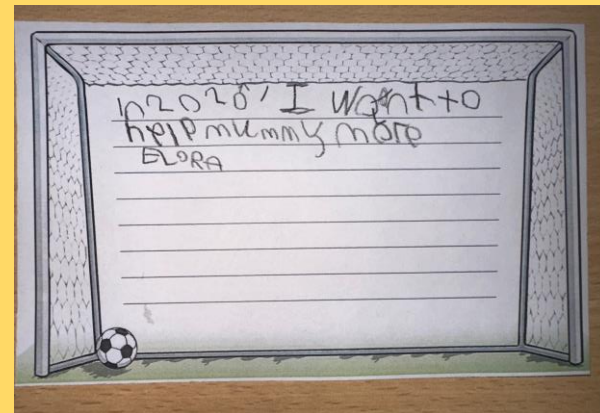 In 2020, I want to
help mummy more
ELORA